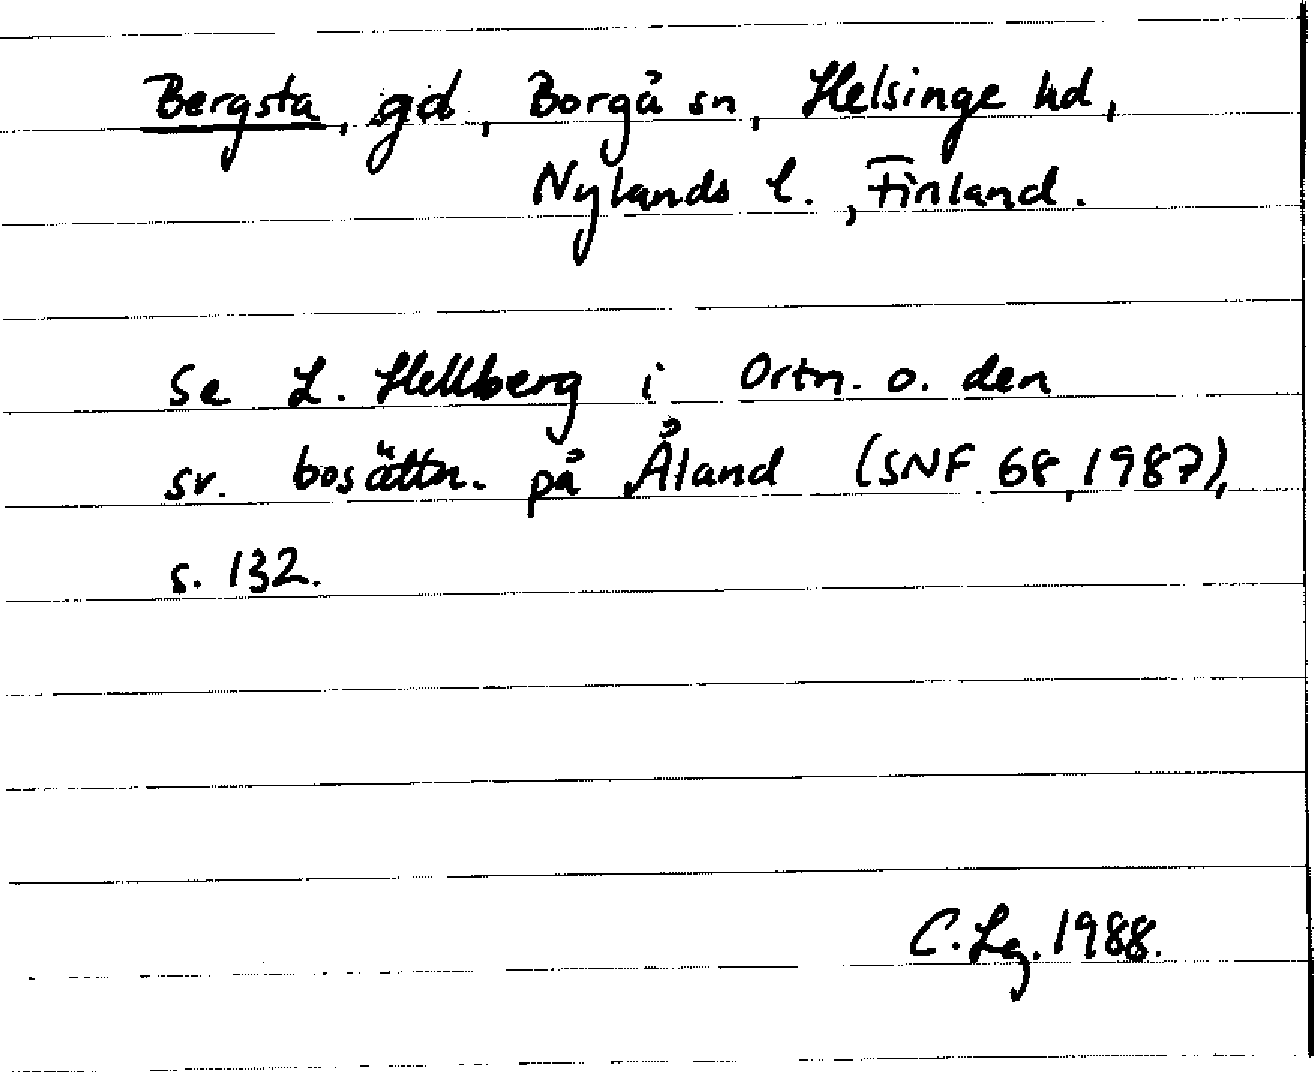 Bergsta, gd, Borgå sn, Helsinge hd,
Nylands l., Finland.
Se L. Hellberg i Ortn. o. den
sv. bosättn. på Åland (SNF 68, 1987),
s. 132.
C. Lg. 1988.